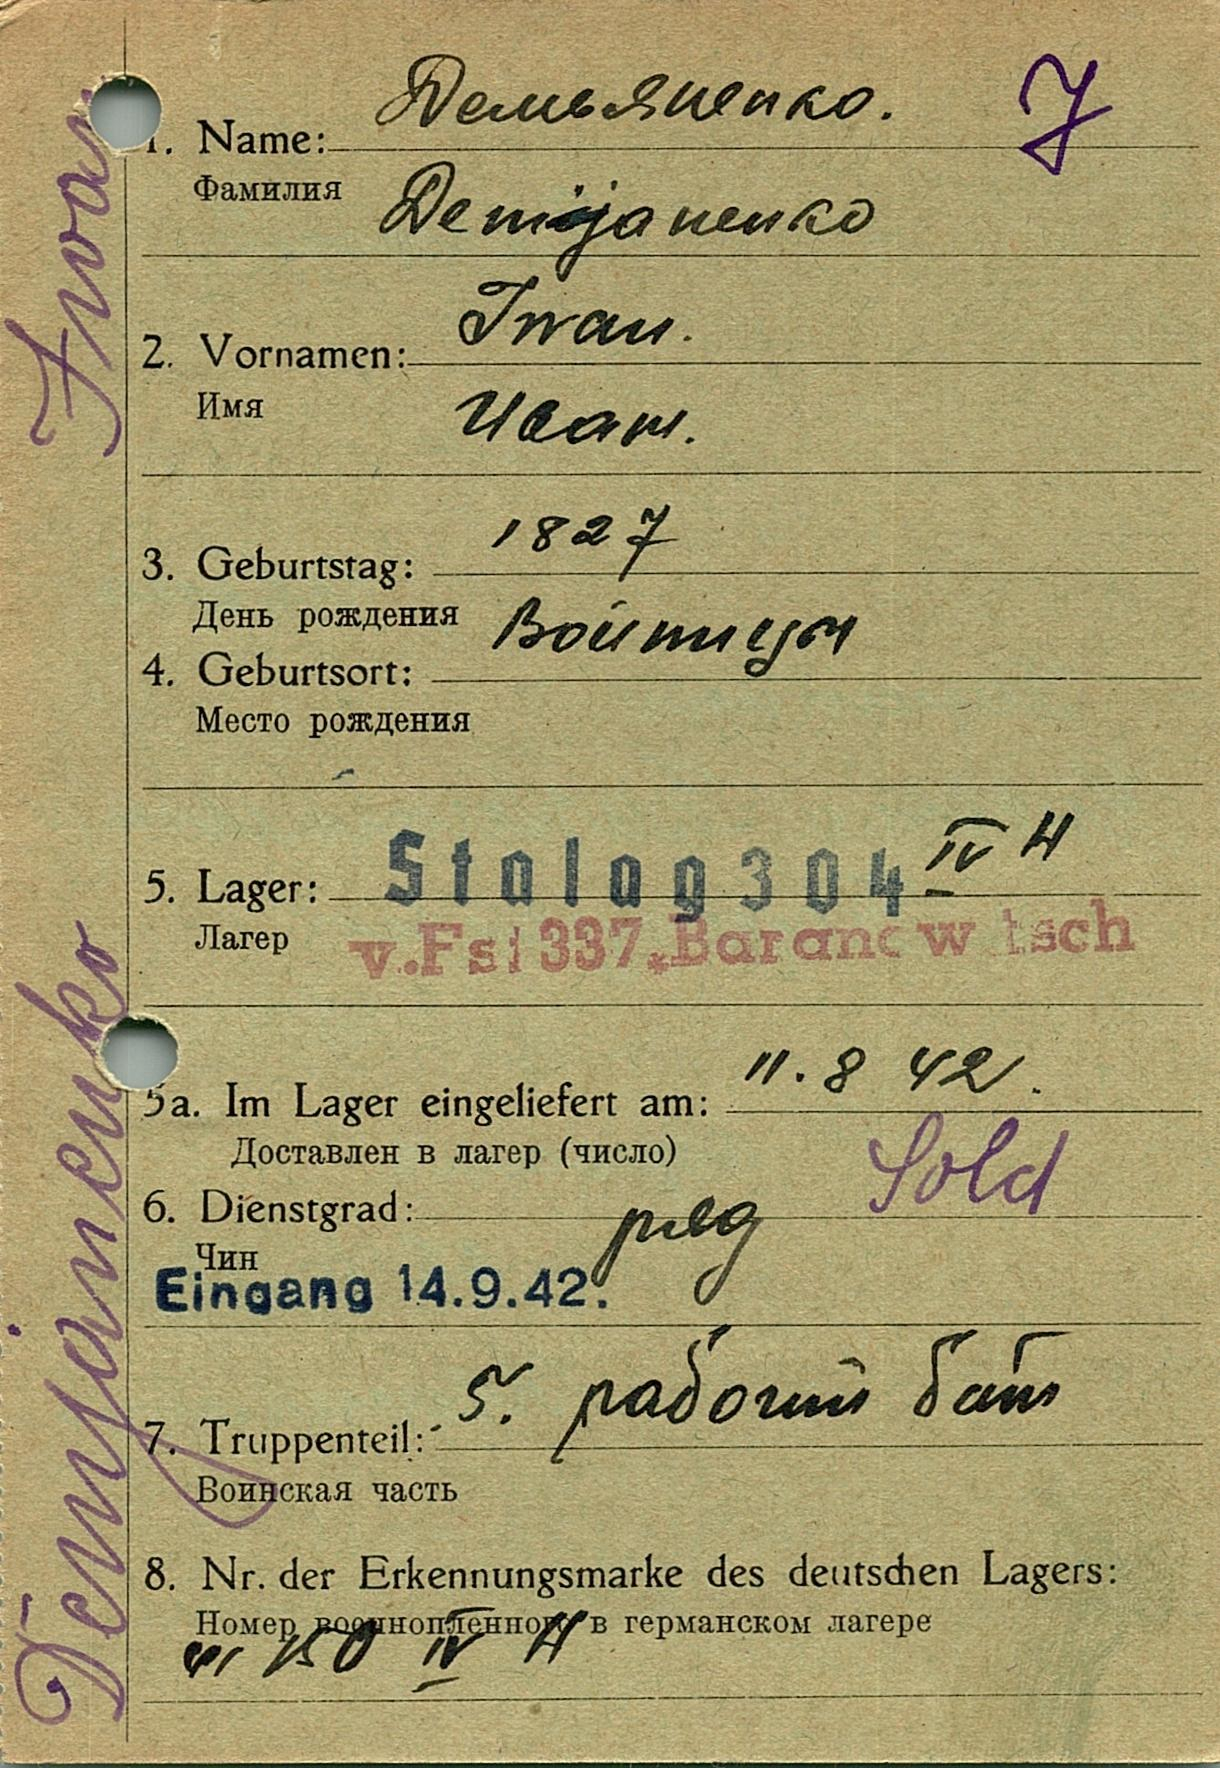 Демьяненко.
J
1. Name:
Фамилия
Demijanenko
Iwan.
2. Vornamen:
Имя
Иван.
1827
3. Geburtstag:
День рождения
4. Geburtsort:
Место рождения
IV H
5. Lager: Stalag 304
Лагер
v. Fst 337. Baranowitsch
11. 8 42.
5a. Im Lager eingeliefert am:
Доставлен в лагер (число)
Sold
6. Dienstgrad: ряд
Чин
Eingang 14.9.42.
5. рабочий бат
7. Truppenteil:
Воинская часть
8. Nr. der Erkennungsmarke des deutschen Lagers:
Номер военнопленного в германском лагере
IV H
Demjanenko Iwan